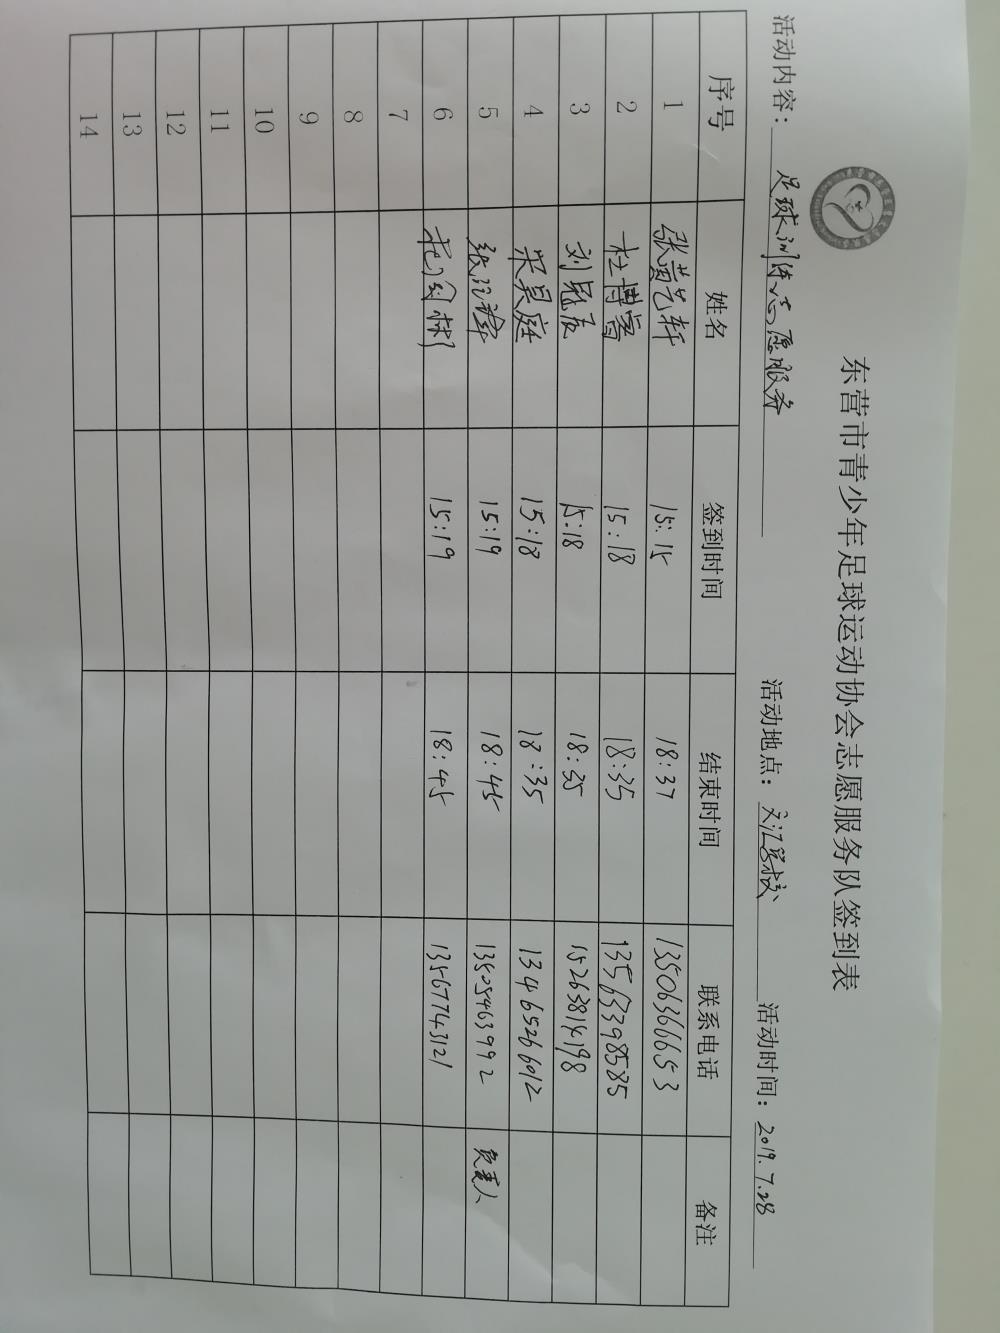 东营市青少年足球运动协会志愿服务队签到表
活动内容：足球训练志愿服务 活动地点：文汇学校 活动时间：2019.7.28
序号 姓名 签到时间 结束时间 联系电话 备注
1 张黄艺轩 15:15 18:37 13506366653
2 杜博睿 15:18 18:35 13563398585
3 刘冠辰 15:18 18:35 15263814198
4 宋昊庭 15:18 18:35 13465266012
5 15:19 18:45 13505463992 负责人
6 15:19 18:45 13567743121
7
8
9
10
11
12
13
14